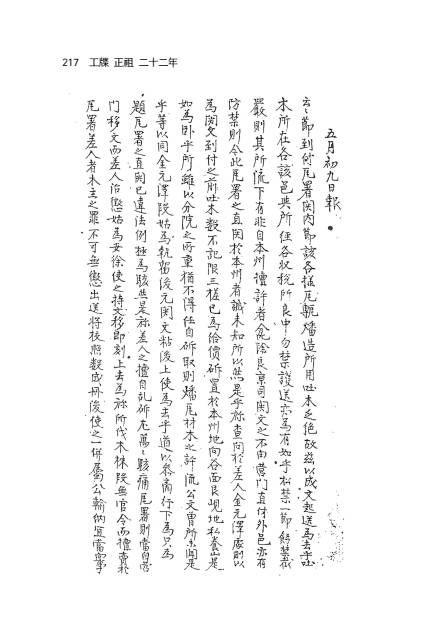 217 工牒 正祖 二十二年
五月初九日報
云云節到付瓦署關內節該各樣瓦甎燔造所用吐木乏絶故玆以成文起送爲去乎吐
木所在各該邑與所經各收稅所良中勿禁護送亦爲有如乎松禁一節飭禁截
嚴則其所流下有非自本州擅許者是除良京司關文之不由營門直付外邑亦有
防禁則今此瓦署之直關於本州者誠未知所以然是乎旀查問於差人金元澤處則以
爲關文到付之前吐木數不記限三槎已爲給價斫置於本州地向谷面艮峴地私養山是
如爲臥乎所雖以分院之所重猶不得任自斫取則燔瓦材木之許流公文曾所未聞是
乎等以同金元澤段姑爲執留後元關文粘後上使爲去乎道以參商行下爲只爲
題瓦署之直關已違法例極爲駭然是旀差人之擅自亂斫尤萬萬駭痛瓦署則當自營
門移文而差人治懲姑爲安徐使之持文移卽刻上去爲旀所伐木株段無官令而擅賣於
瓦署差人者木主之罪不可無懲出送將校照數成冊後使之一倂屬公輸納宜當向事